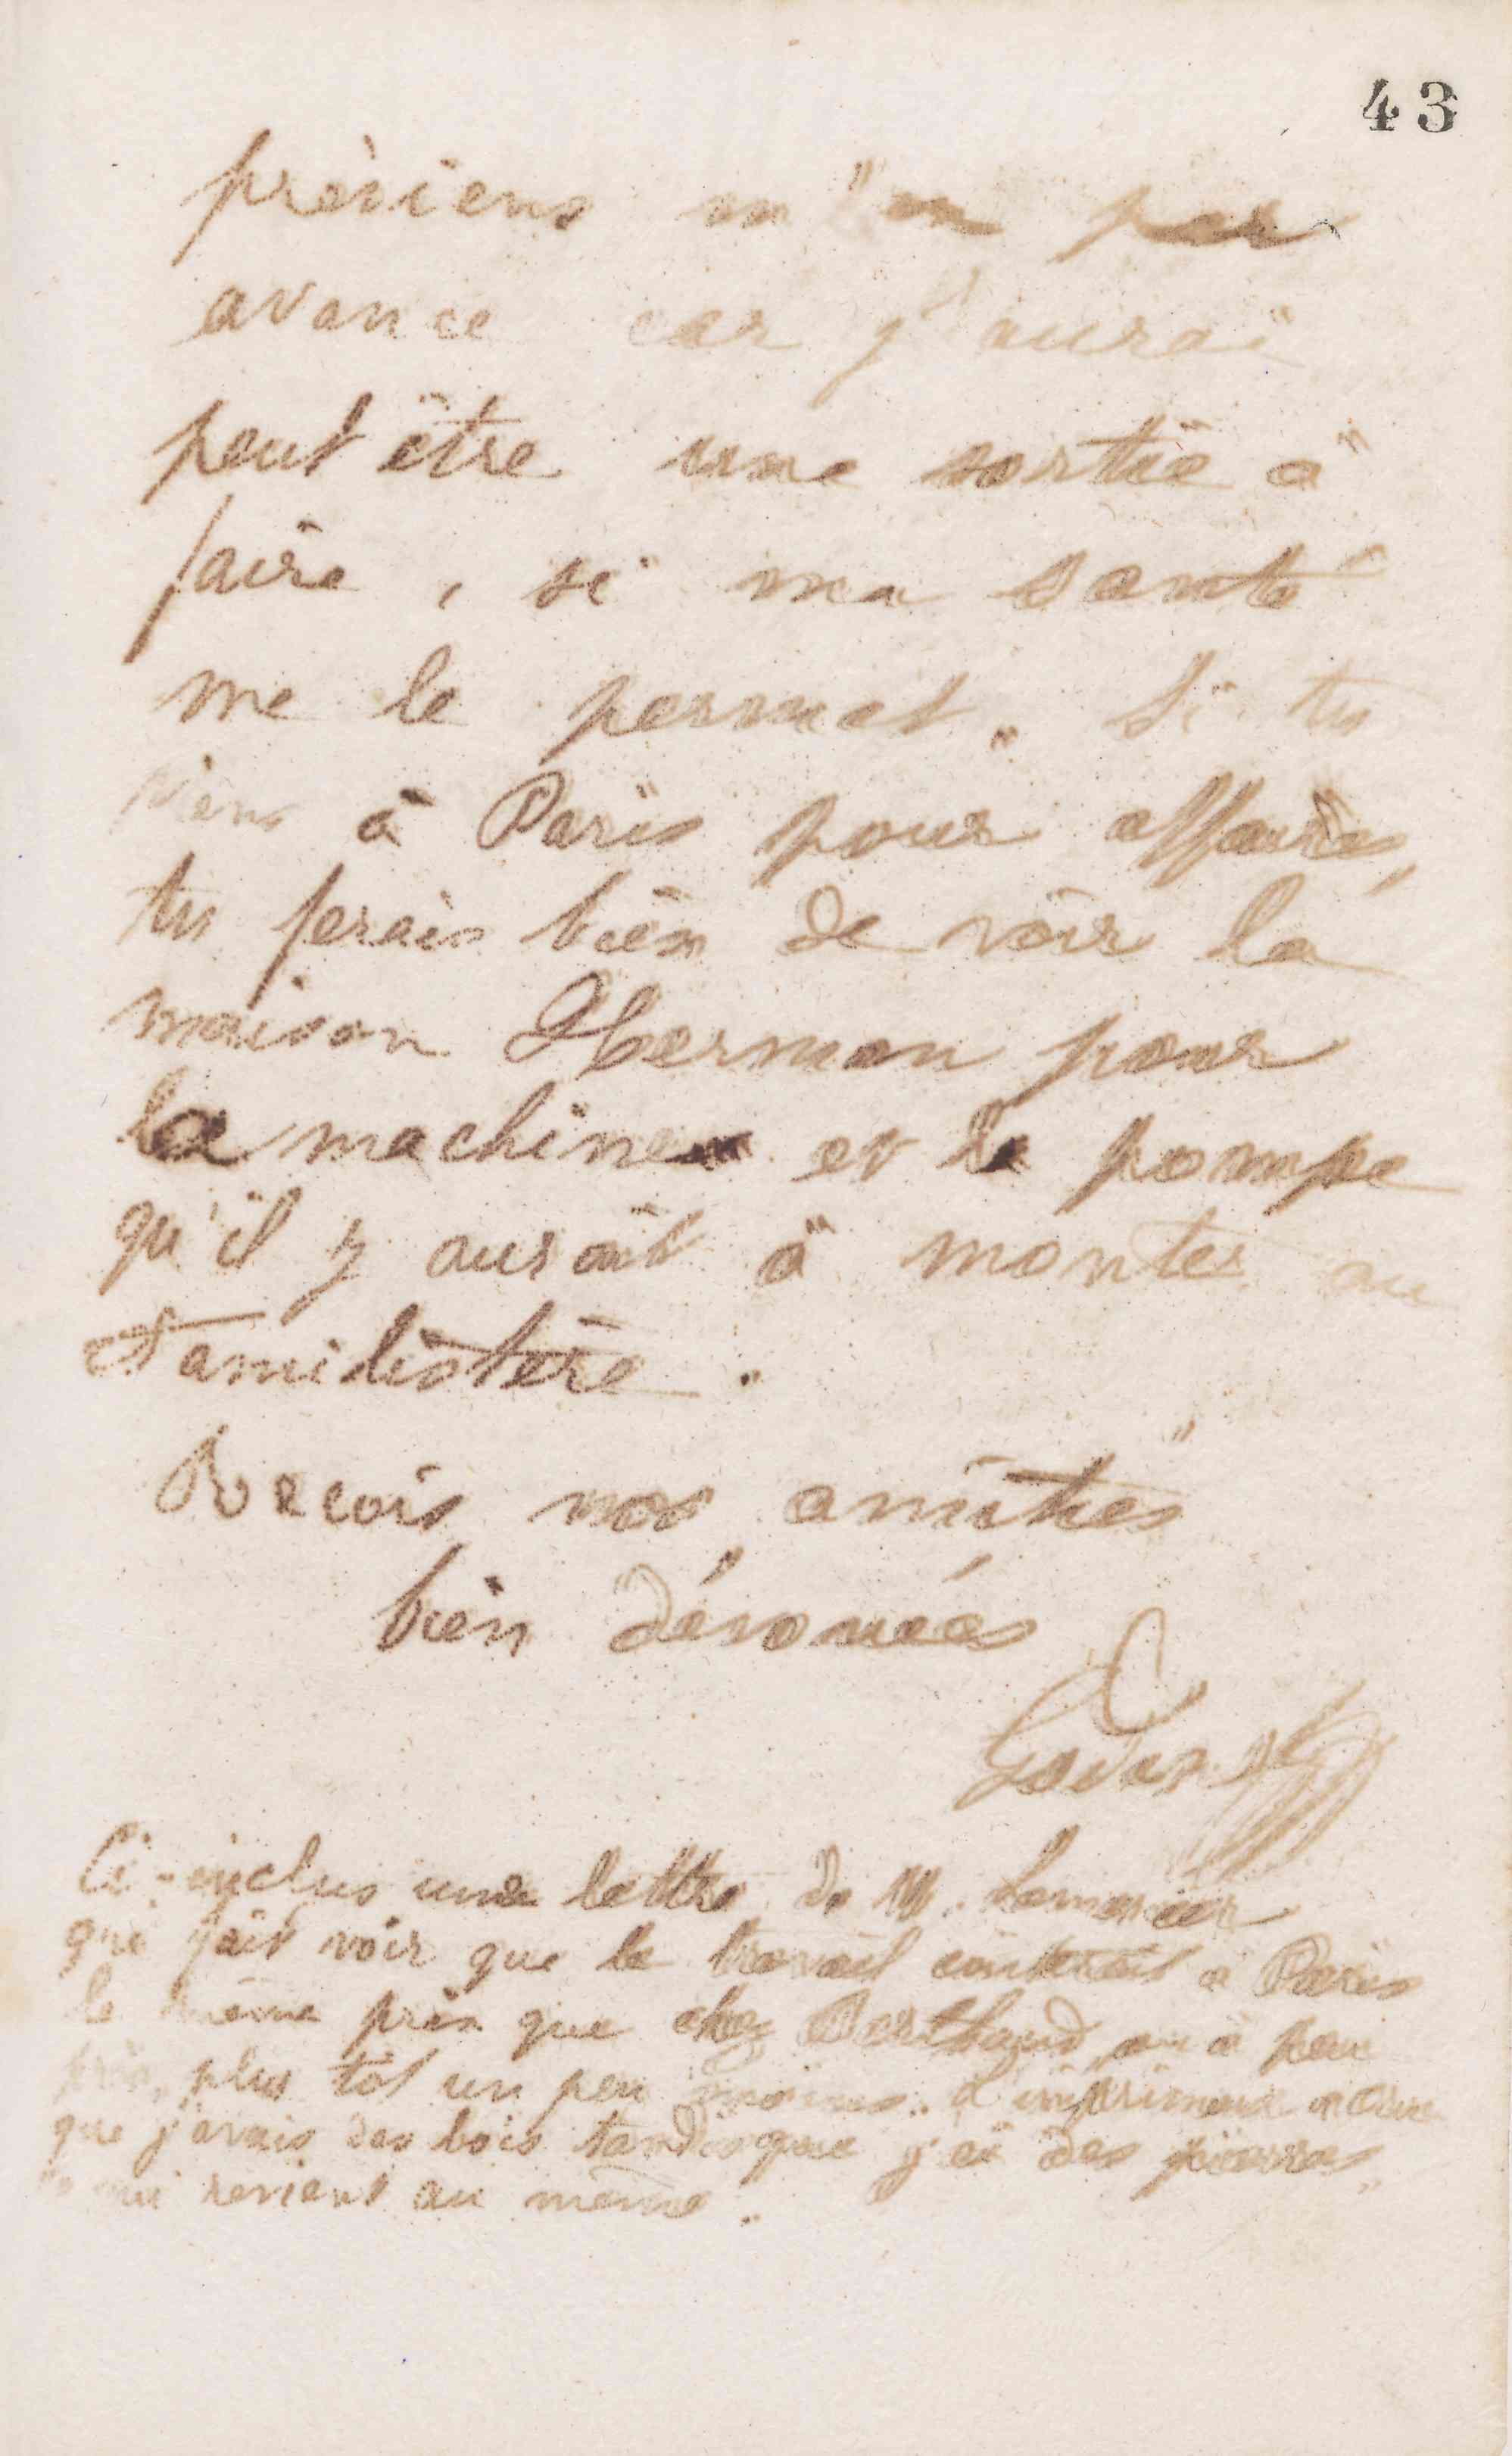 43
préviens m'en par
avance car j'aurai
peut être une sortie à
faire, si ma santé
me le permet. Si tu
viens à Paris pour affaires,
tu ferais bien de voir la
maison Herman pour
la machine et la pompe
qu'il y aurait à monter au
Familistère.
Reçois nos amitiés
bien dévouées
Godin
Ci-inclus une lettre de M. Lemercier
qui fait voir que le travail coûterait à Paris
le même prix que chez Berthaud, ou à peu
près, plus tôt un peu moins. L'imprimeur a cru
que j'avais des bois tandis que j'ai des pierres,
qui revient au même.